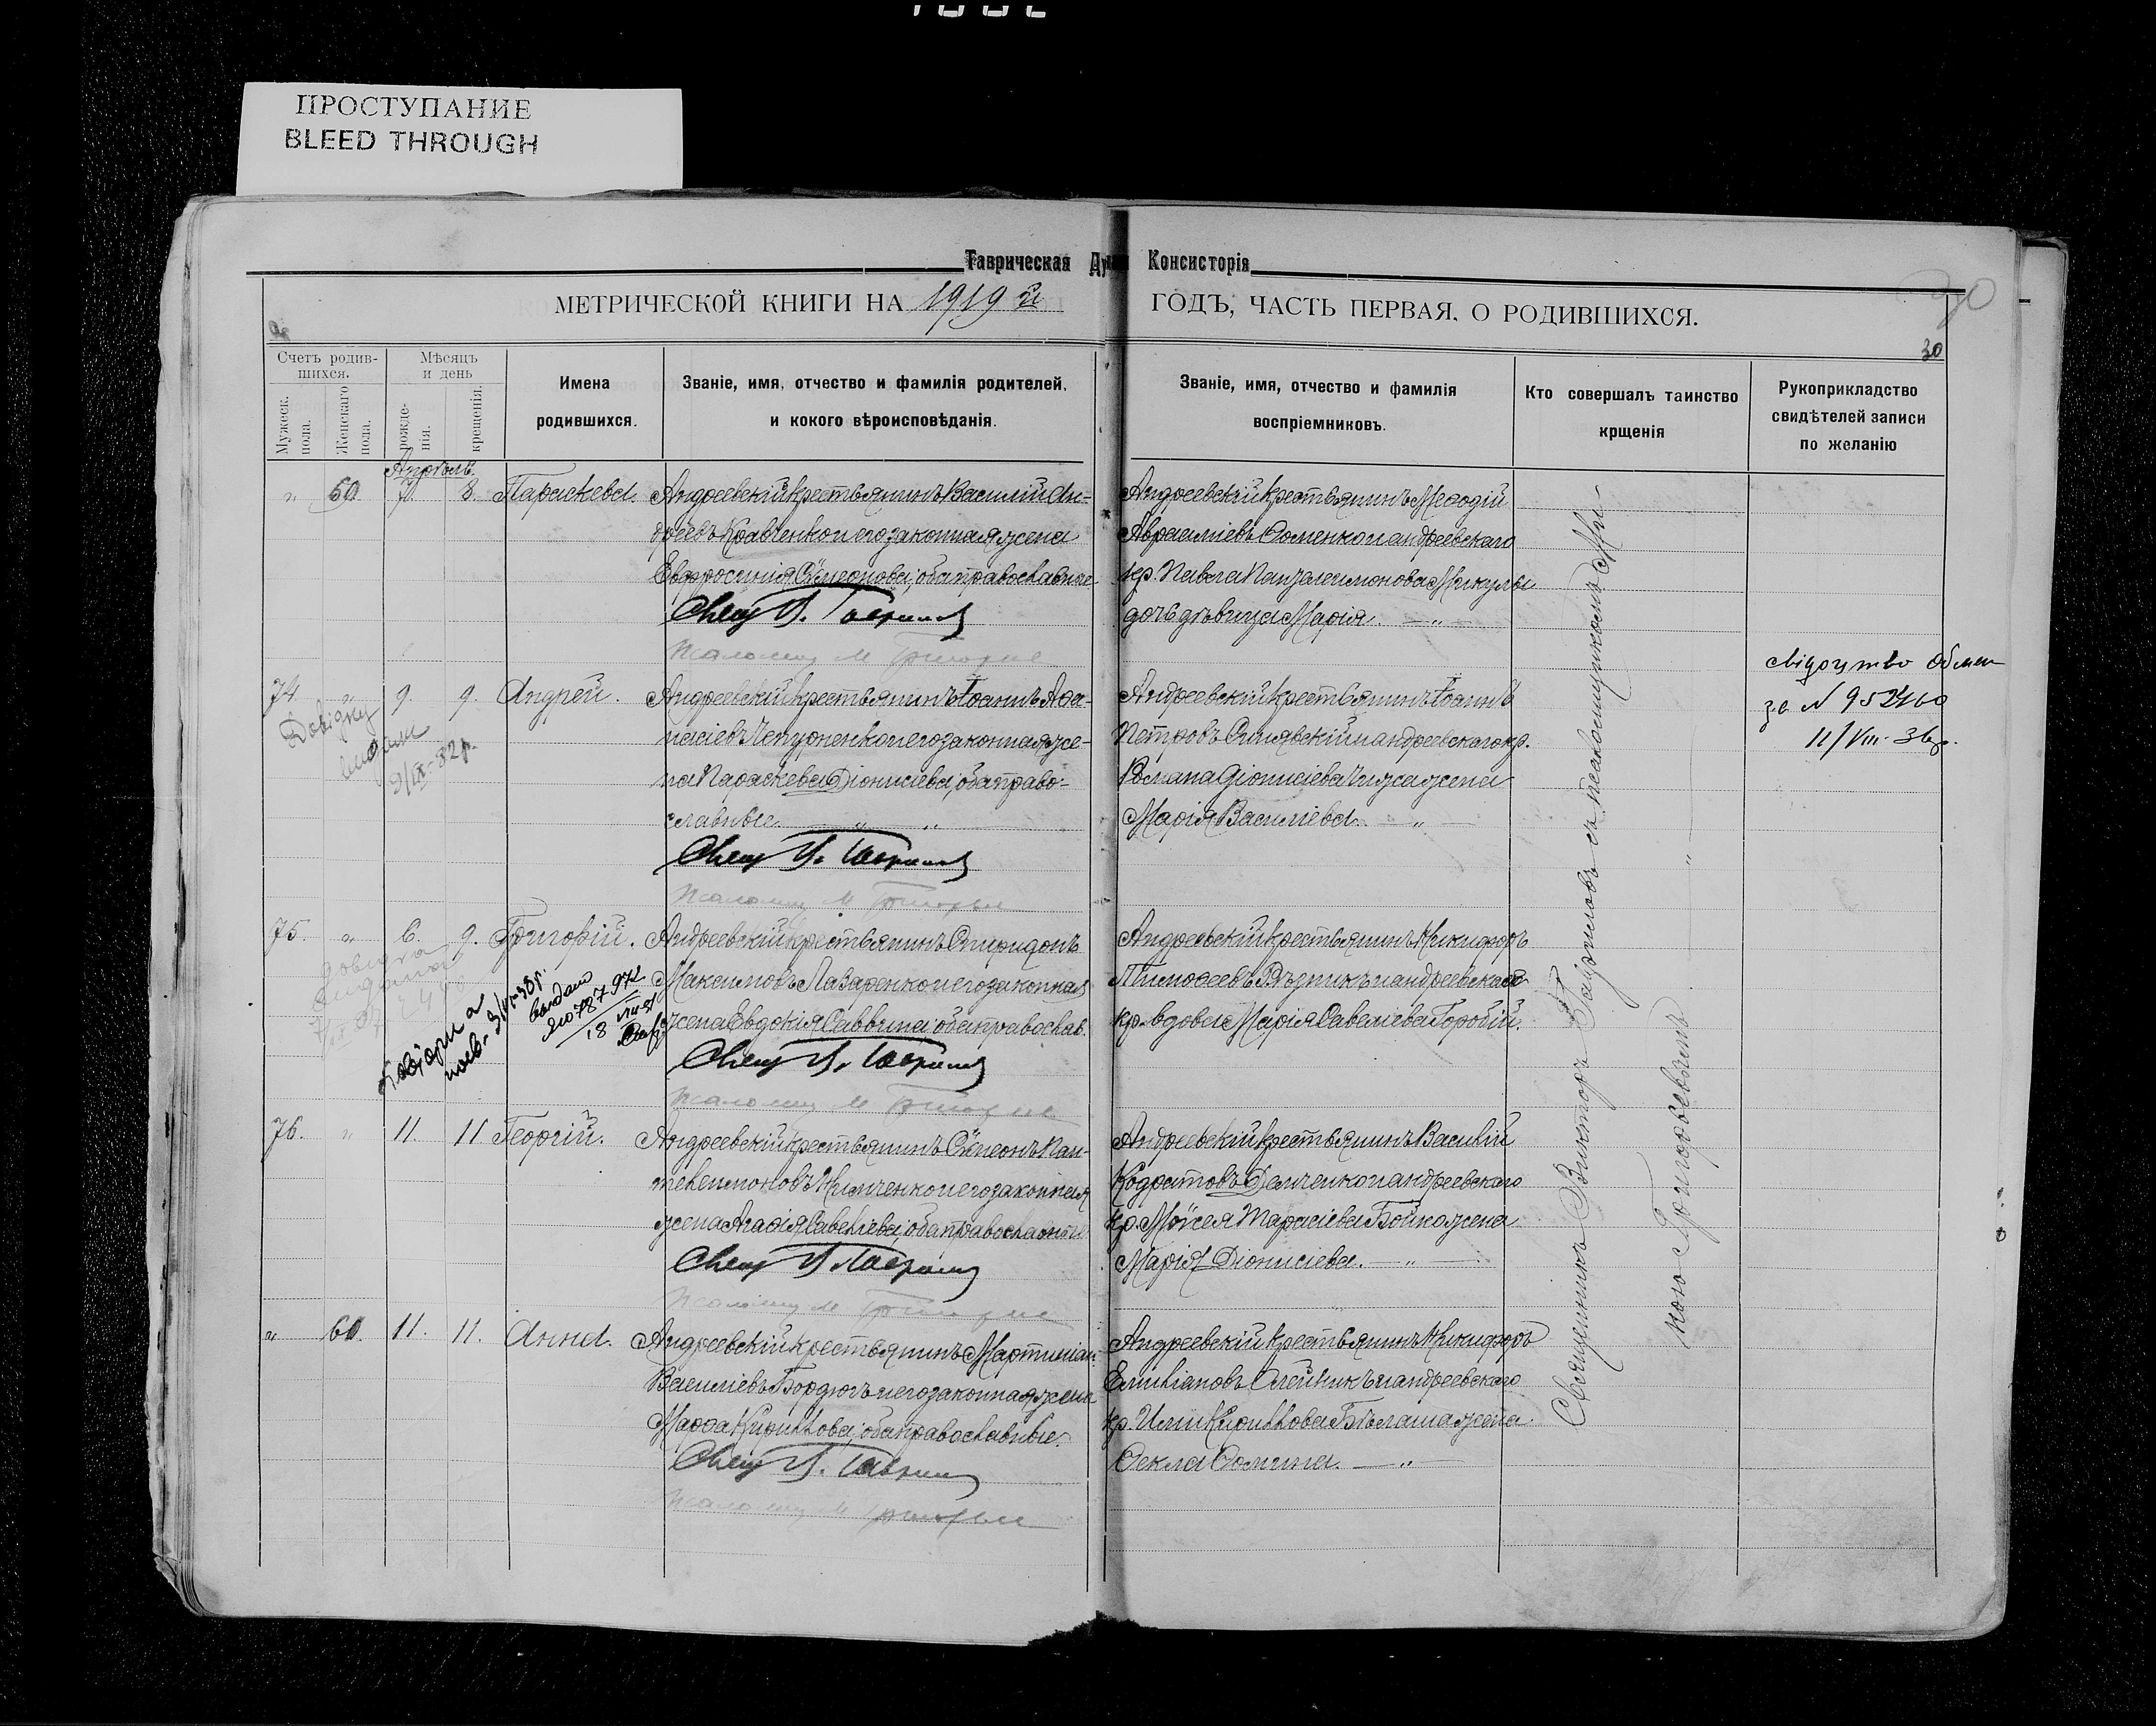 ПРОСТУПАНИЕ
BLEED THROUGH
Таврическая Ду Консисторія
МЕТРИЧЕСКОЙ КНИГИ НА 1919 й ГОДЪ, ЧАСТЬ ПЕРВАЯ, О РОДИВШИХСЯ.
30
Счетъ родив-
шихся.
Мужеск.
пола.
Женскаго
пола.
Мѣсяцъ
и день
рожде-
нія.
крещенія.
Имена
родившихся.
Званіе, имя, отчество и фамилія родителей,
и кокого вѣроисповѣданія.
Званіе, имя, отчество и фамилія
воспріемниковъ.
Кто совершалъ таинство
крщенія
Рукоприкладство
свидѣтелей записи
по желанію
Апрѣль.
" 60 7. 8. Параскева.
Андреевскій крестьянинъ Василій Ан-
дреевъ Кравченко и его законная жена
Евфросинія Сѵмеонова, оба православные.
Свящ В. Гаврилов
Псаломщ М Григорие
Андреевскій крестьянинъ Меѳодій
Авраміевъ Ѳоменко и андреевскаго
кр. Павла Панталеимонова Микулы
дочь дѣвица Марія. — " —
74. " 9. 9. Андрей.
Довідку
видали
9/IX-32р.
Андреевскій крестьянинъ Іоаннъ Аѳа-
насіевъ Чепурненко и его законная же-
на Параскева Діонисіева, оба право-
славные. " "
Свящ В. Гаврилов
Псаломщ М Григорие
Андреевскій крестьянинъ Іоаннъ
Петровъ Синявскій и андреевскаго кр.
Романа Діонисіева Чижа жена
Марія Василіева. — " —
свідоцтво обмен
за N 952460
11/VIII-36р.
75. " 6. 9. Григорій.
довідка
видана
Андреевскій крестьянинъ Спиридонъ
Максимовъ Лазаренко и его законная
жена Евдокія Саввина, оба православ.
Свящ В. Гаврилов
Псаломщ М Григорие
Андреевскій крестьянинъ Никифоръ
Тимоѳеевъ Рѣзникъ и андреевская
кр. вдова Марія Савеліева Горобій.
76. " 11. 11 Георгій.
Андреевскій крестьянинъ Сѵмеонъ Пан-
телеимоновъ Климченко и его законная
жена Агаѳія Савеліева, оба православные
Свящ В. Гаврилов
Псаломщ М Григорие
Андреевскій крестьянинъ Василій
Кодратовъ Демченко и андреевскаго
кр. Моѵсея Тарасіева Бойко жена
Марія Діонисіева. — " —
" 61. 11. 11. Анна.
Андреевскій крестьянинъ Мартиніан.
Василіевъ Бордюгъ и его законная жена
Марѳа Кириллова, оба православные.
Свящ В. Гаврилов
Псаломщ М Григорие
Андреевскій крестьянинъ Никифоръ
Емиліановъ Олейникъ и андреевскаго
кр. Иліи Кириллова Бѣлаша жена
Ѳекла Ѳомина. — " —
Священникъ Викторъ Гавриловъ съ псаломщикомъ Ми-
ною Григоровичемъ